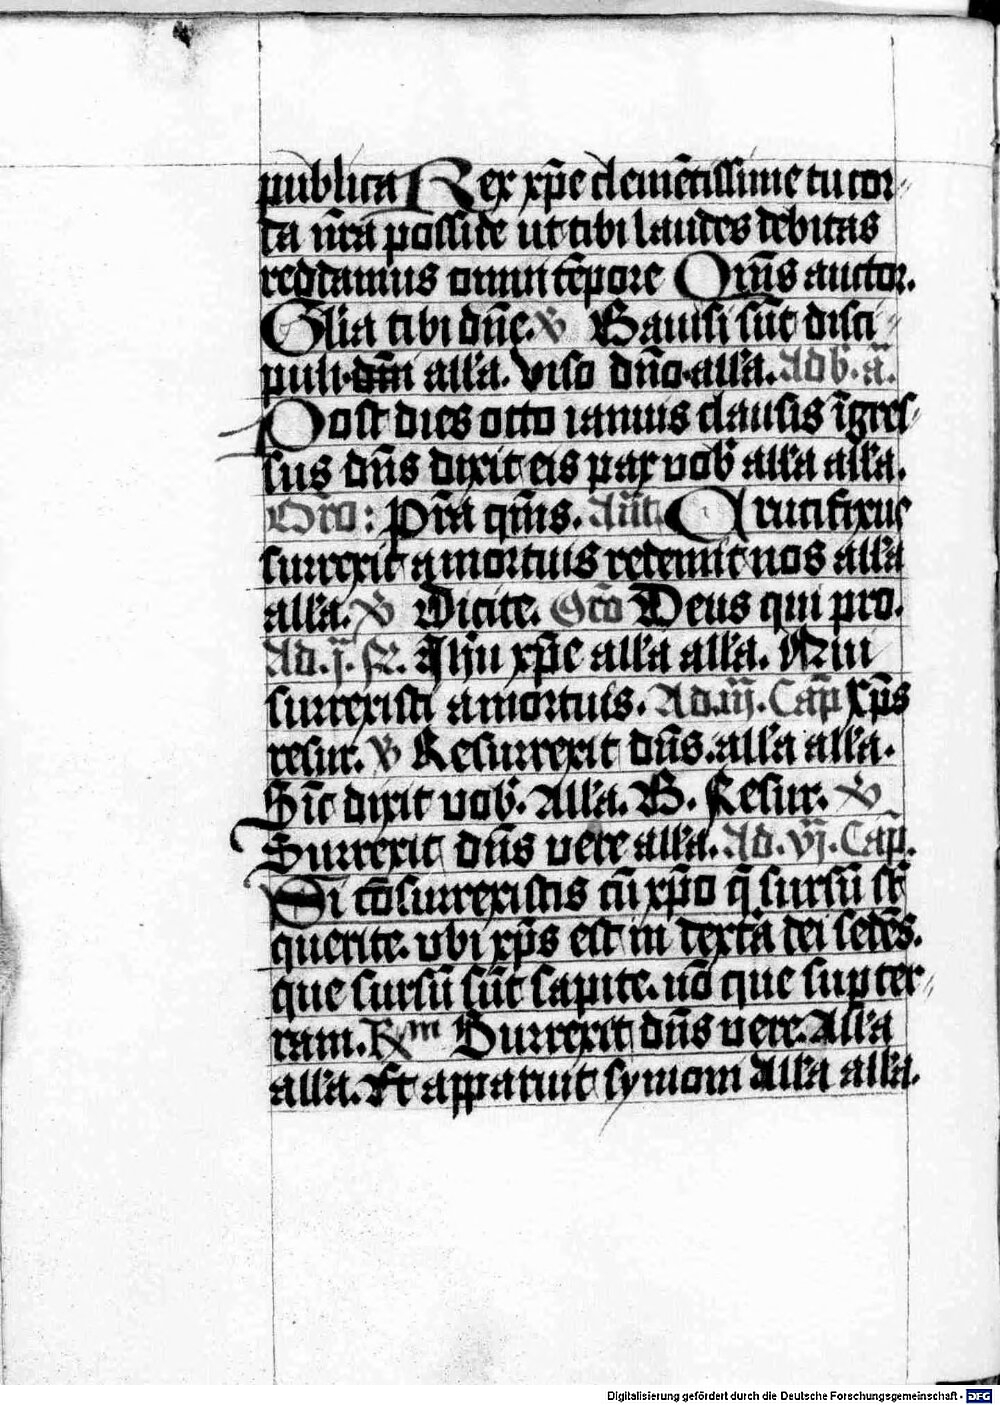 publica Rex xp̄e clemētissime tu cor⸗
da nr̄a posside ut tibi laudes debitas
reddamus omni tēpore Qms̄ auctor.
Glīa tibi dn̄e. ℣ Gauisi sūt disci⸗
puli dn̄i all'a. viso dn̄o all'a. Ad b. a̅.
Post dies octo ianuis clausis īgres⸗
sus dn̄s dixit eis pax vob' all'a all'a.
Oro: Pr̄a qm̄s. Ant̄. Crucifixus
surrexit a mortuis redemit nos all'a
all'a. ℣ Dicite. Oro Deus qui pro.
Ad .j. R̵. Ihu xp̄e all'a all'a. Qui
surrexisti a mortuis. Ad .iij. Cap̄ Xp̄s
resur. ℣ Resurrexit dn̄s. all'a all'a.
Sic̄ dixit vob'. All'a. ℣. Resur. ℣
Surrexit dn̄s vere all'a. Ad .vj. Cap̄.
Si cōsurrexistis cū xp̄o q̄ sursū st̄
querite. vbi xp̄s est in dextā dei sedēs.
que sursū sūt sapite. nō que sup ter⸗
ram. Rm Surrexit dn̄s vere. All'a
all'a. Et apparuit symoni All'a all'a.
Digitalisierung gefördert durch die Deutsche Forschungsgemeinschaft - DFG